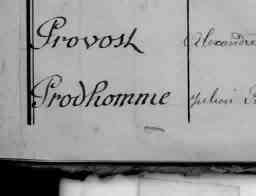 Provost Alexandre
Prodhomme Julien